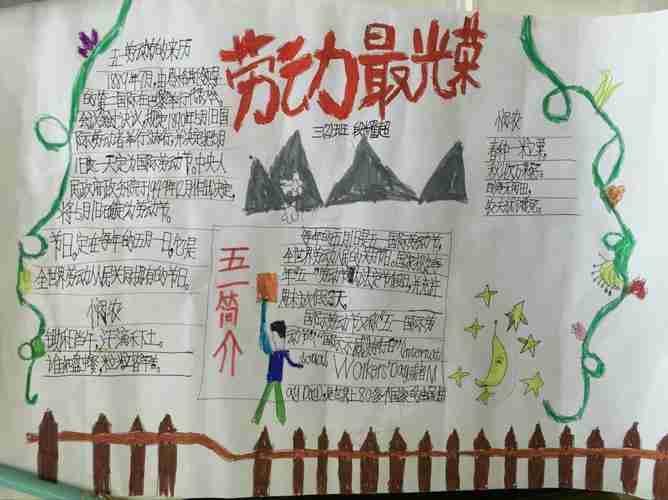 劳动最光荣
三(2)班 段 超
五一劳动节的来历
1889年7月,由恩格斯领导
的第二国际在巴黎举行代表
会议通过决议,规定1890年5月1日国
际劳动者举行游行,并决定把5月
1日这一天定为国际劳动节。中央人
民政府政务院于1949年12月作出决定,
将5月1日确定为劳动节。
节日。定在每年的五月一日。它是
全世界劳动人民共同拥有的节日。
悯农
锄禾日当午,汗滴禾下土。
谁知盘中餐,粒粒皆辛苦。
五一简介
每年的五月1日是五一国际劳动节,
全世界劳动人民的共同节日,
年"五一"劳动节
国际劳动节又称"五一国际劳
动节""国际示威游行日"(Internati
onal Workers' Day或者M
ay Day),是世界上80多个国家的全国
悯农
春种一粒粟,
秋收万颗子。
四海无闲田,
农夫犹饿死。